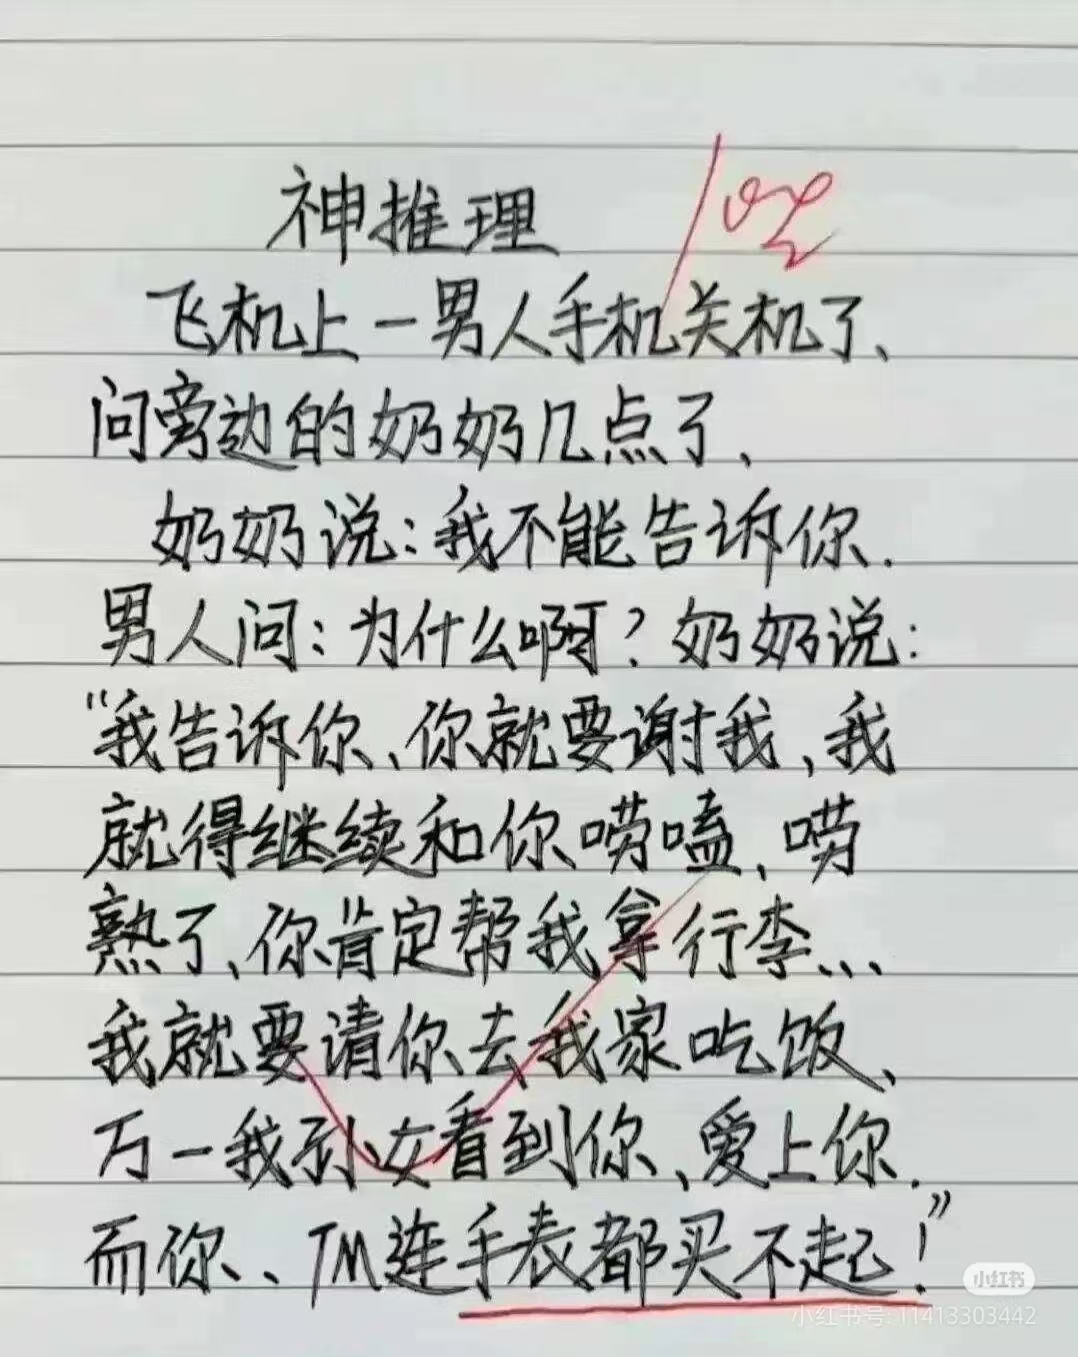 神推理
飞机上一男人手机关机了、
问旁边的奶奶几点了、
奶奶说：我不能告诉你.
男人问：为什么啊？奶奶说：
“我告诉你、你就要谢我、我
就得继续和你唠嗑、唠
熟了、你肯定帮我拿行李、、、
我就要请你去我家吃饭、
万一我孙女看到你、爱上你.
而你、、TM连手表都买不起！”
小红书
小红书号: 11413303442